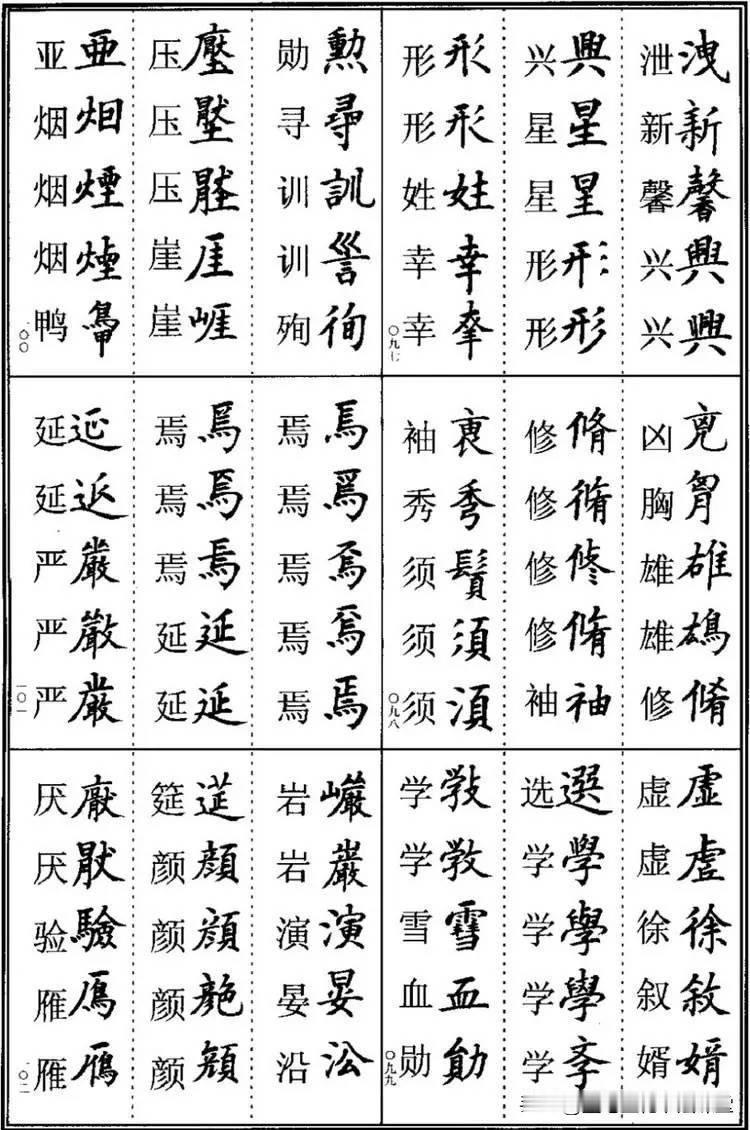 泄洩
新新
馨馨
兴興
兴興
兴興
星星
星星
形形
形形
形形
形形
姓姓
幸幸
幸
〇九七
凶
胸胷
雄雄
雄鴆
修脩
修脩
修脩
修修
修脩
袖袖
袖
秀秀
须鬚
须須
须須
〇九八
虚虚
虚虚
徐徐
叙敘
婿婿
选選
学學
学學
学學
学斈
学斅
学教
雪雪
血血
勋勛
〇九九
勋勳
寻尋
训訓
训
殉徇
压壓
压壓
压壓
崖厓
崖崕
亚亞
烟烟
烟煙
烟煙
鸭
一〇〇
焉焉
焉焉
焉焉
焉焉
焉焉
焉焉
焉焉
焉焉
延延
延延
延延
延延
严嚴
严嚴
严嚴
一〇一
岩巖
岩巖
演演
晏晏
沿沿
筵筵
颜顔
颜顔
颜
颜顔
厌厭
厌猒
验驗
雁鴈
雁鴈
一〇二